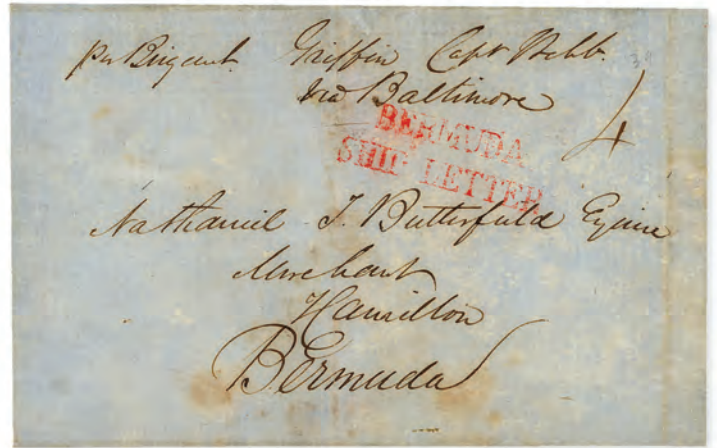 per Brigant. Griffin Capt Webb.
via Baltimore
4
BERMUDA
SHIP LETTER
Nathaniel T. Butterfield Esquire
Merchant
Hamilton
Bermuda